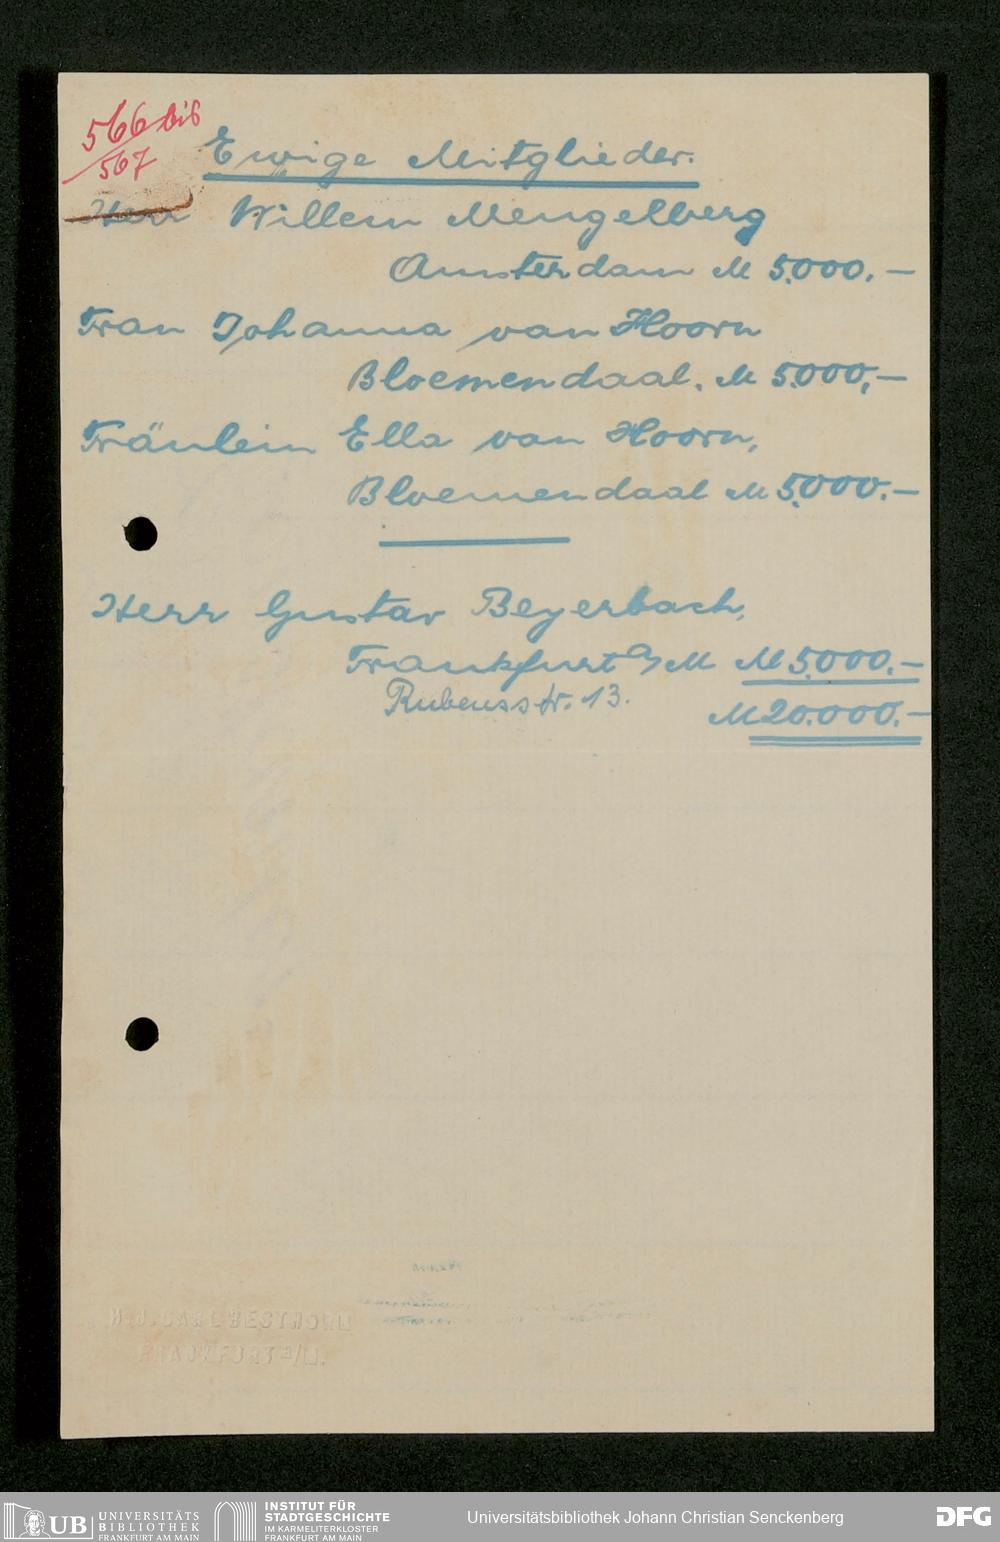 566 bis
567
Ewige Mitglieder.
Herr Willem Mengelberg
Amsterdam M 5.000.—
Frau Johanna van Hoorn
Bloemendaal. M 5.000,—
Fräulein Ella van Hoorn,
Bloemendaal M 5.000.—
Herr Gustav Beyerbach,
Frankfurt a/M M 5.000.—
Rubensstr. 13.
M 20.000.—
H. J. CARL BESTHORN
FRANKFURT a/M.
UB UNIVERSITÄTS
BIBLIOTHEK
FRANKFURT AM MAIN
INSTITUT FÜR
STADTGESCHICHTE
IM KARMELITERKLOSTER
FRANKFURT AM MAIN
Universitätsbibliothek Johann Christian Senckenberg
DFG